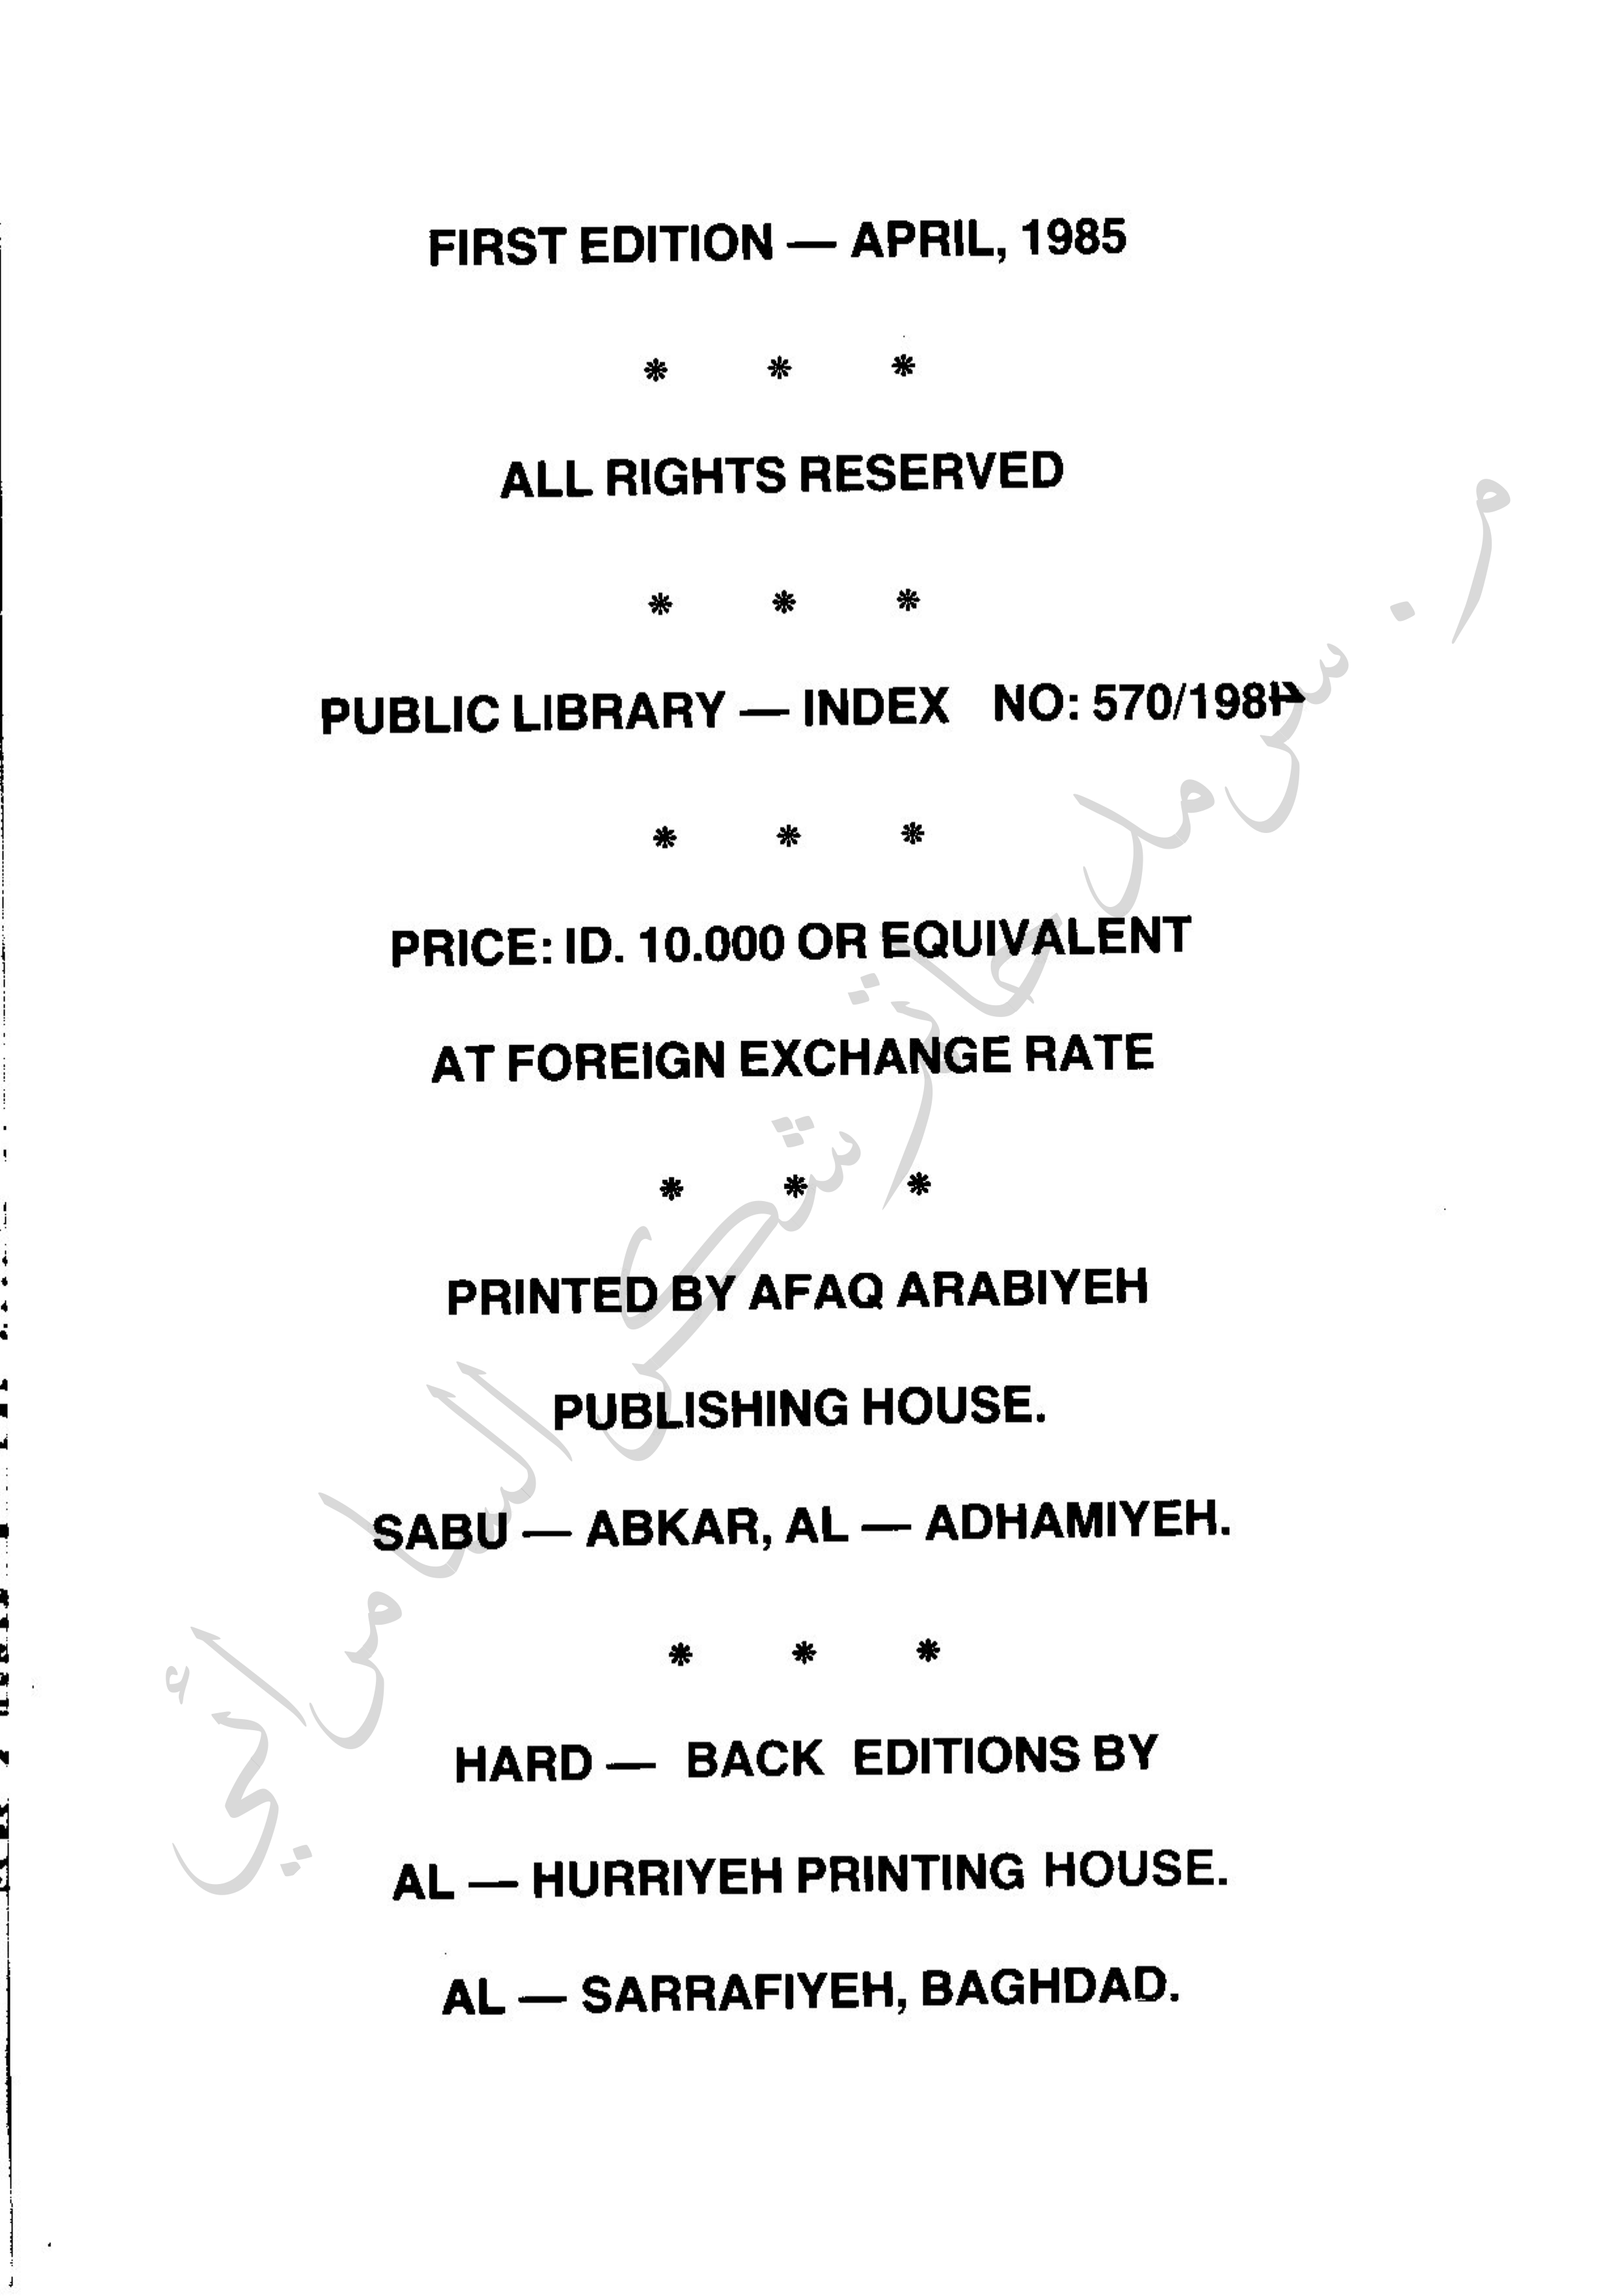 FIRST EDITION — APRIL, 1985
* * *
ALL RIGHTS RESERVED
* * *
PUBLIC LIBRARY — INDEX NO: 570/198
* * *
PRICE: ID. 10.000 OR EQUIVALENT
AT FOREIGN EXCHANGE RATE
* * *
PRINTED BY AFAQ ARABIYEH
PUBLISHING HOUSE.
SABU — ABKAR, AL — ADHAMIYEH.
* * *
HARD — BACK EDITIONS BY
AL — HURRIYEH PRINTING HOUSE.
AL — SARRAFIYEH, BAGHDAD.
م. سرمد حاتم شكر السامرائي